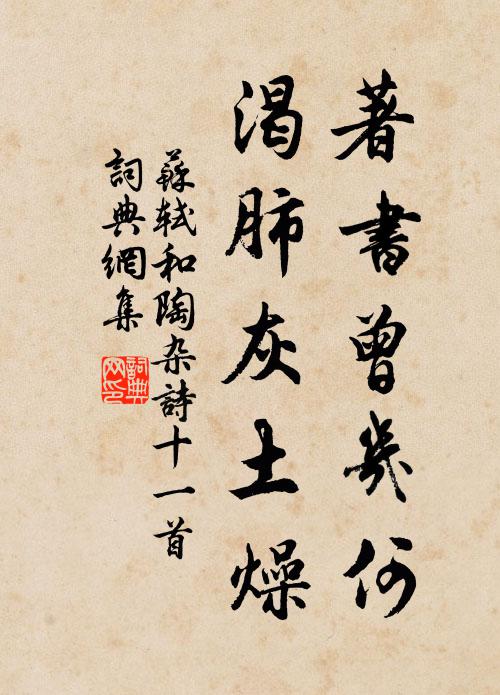 著書曾幾何
渴肺灰土燥
蘇軾和陶杂詩十一首
詞典網集
詞典网印